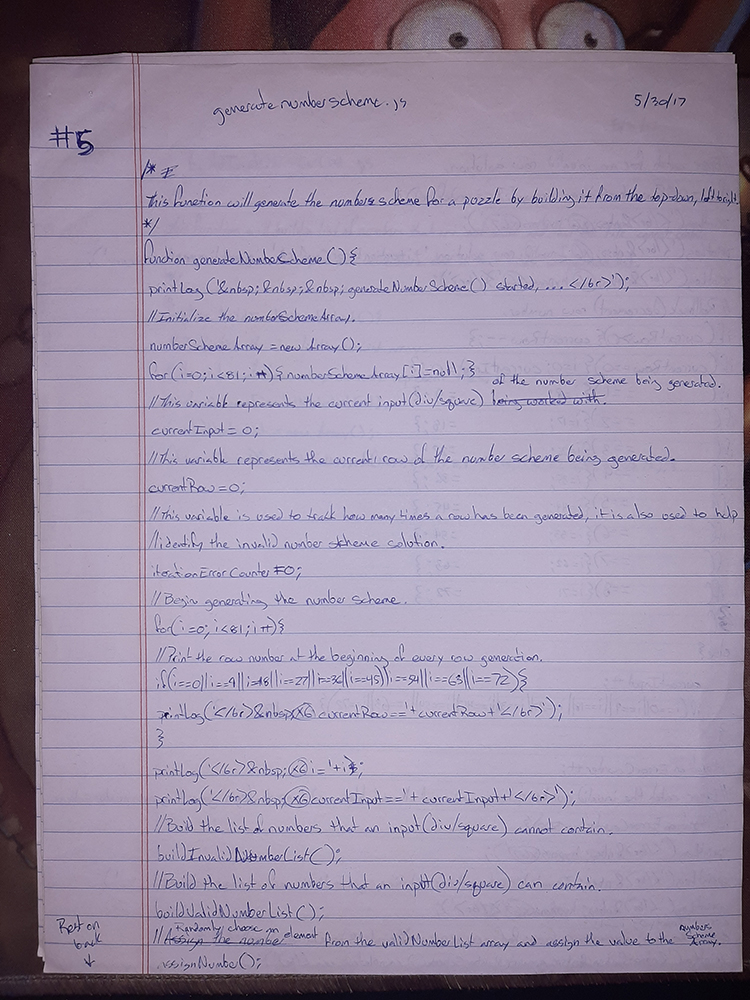 generate number scheme.js 5/30/17
#5
/*
This function will generate the numbers scheme for a puzzle by building it from the top-down, left to right.
*/
function generateNumberScheme(){
printLog('&nbsp;&nbsp;&nbsp;generateNumberScheme() started, ... </br>');
//Initialize the numberSchemeArray.
numberSchemeArray = new Array();
for(i=0;i<81;i++){numberSchemeArray[i]=null;}
of the number scheme being generated.
//This variable represents the current input(div/square) being worked with.
currentInput = 0;
//This variable represents the current row of the number scheme being generated.
currentRow=0;
//This variable is used to track how many times a row has been generated, it is also used to help
//identify the invalid number scheme solution.
iterationErrorCounter=0;
//Begin generating the number scheme.
for(i=0;i<81;i++){
//Print the row number at the beginning of every row generation.
if(i==0||i==9||i==18||i==27||i==36||i==45||i==54||i==63||i==72){
printLog('</br>&nbsp;(x6)currentRow=='+currentRow+'</br>');
}
printLog('</br>&nbsp;(x6)i='+i);
printLog('</br>&nbsp;(x6)currentInput=='+currentInput+'</br>');
//Build the list of numbers that an input(div/square) cannot contain.
buildInvalidNumberList();
//Build the list of numbers that an input(div/square) can contain.
buildValidNumberList();
Randomly choose an element number scheme
//Assign the number from the validNumberList array and assign the value to the Array.
assignNumber();
Rest on
back
↓